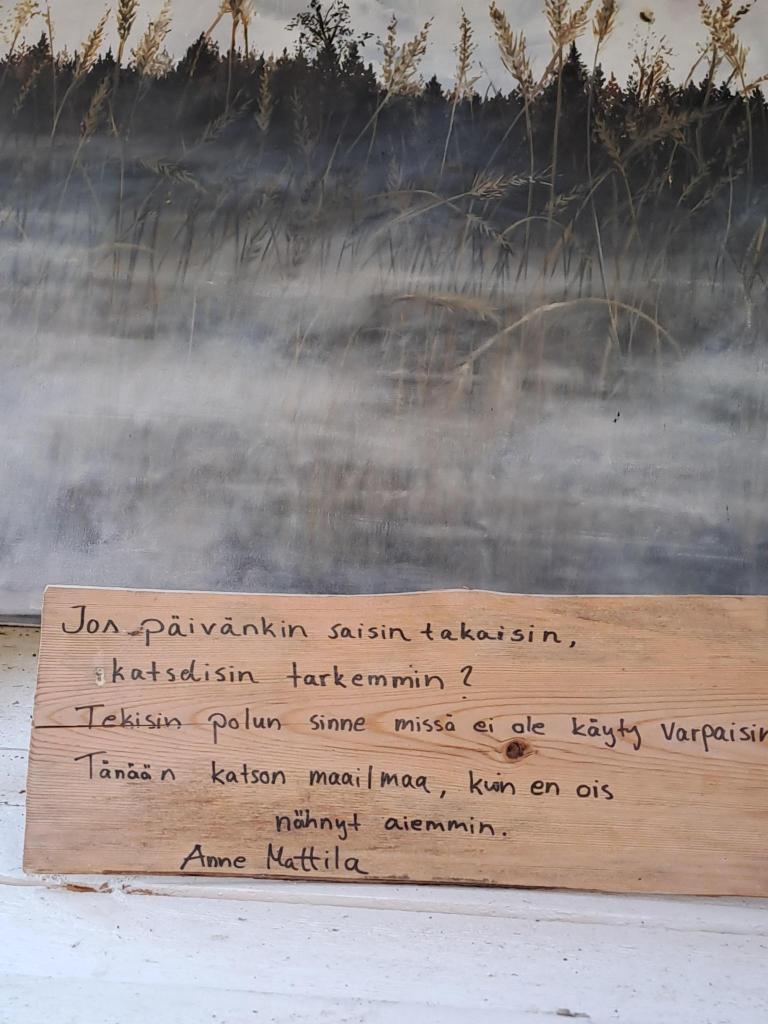 Jos päivänkin saisin takaisin,
katselisin tarkemmin?
Tekisin polun sinne missä ei ole käyty varpaisin
Tänään katson maailmaa, kuin en ois
nähnyt aiemmin.
Anne Mattila